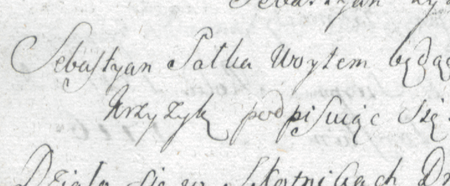 Sebastyan
Sebastyan Satka Woytem będąc
Krzyzyk podpisuiąc się
Działo się w Skotnikach